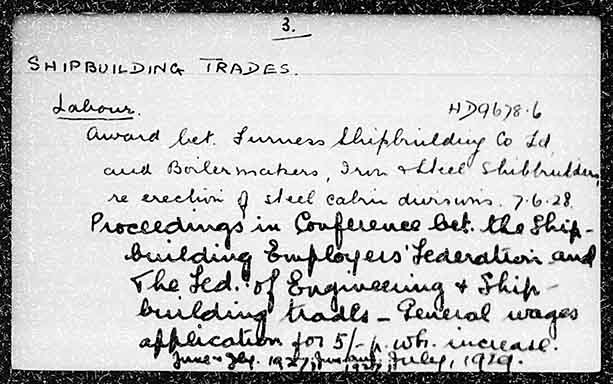 3.
SHIPBUILDING TRADES.
Labour. HD9678.6
Award bet. Furness Shipbuilding Co Ld
and Boilermakers, Iron & Steel Shipbuilders
re erection of steel cabin divisions. 7.6.28.
Proceedings in Conference bet. the Ship-
building Employers' Federation and
The Fed. of Engineering & Ship-
building trades – General wages
application for 5/- p. wk. increase.
June & 1927, July, 1929.